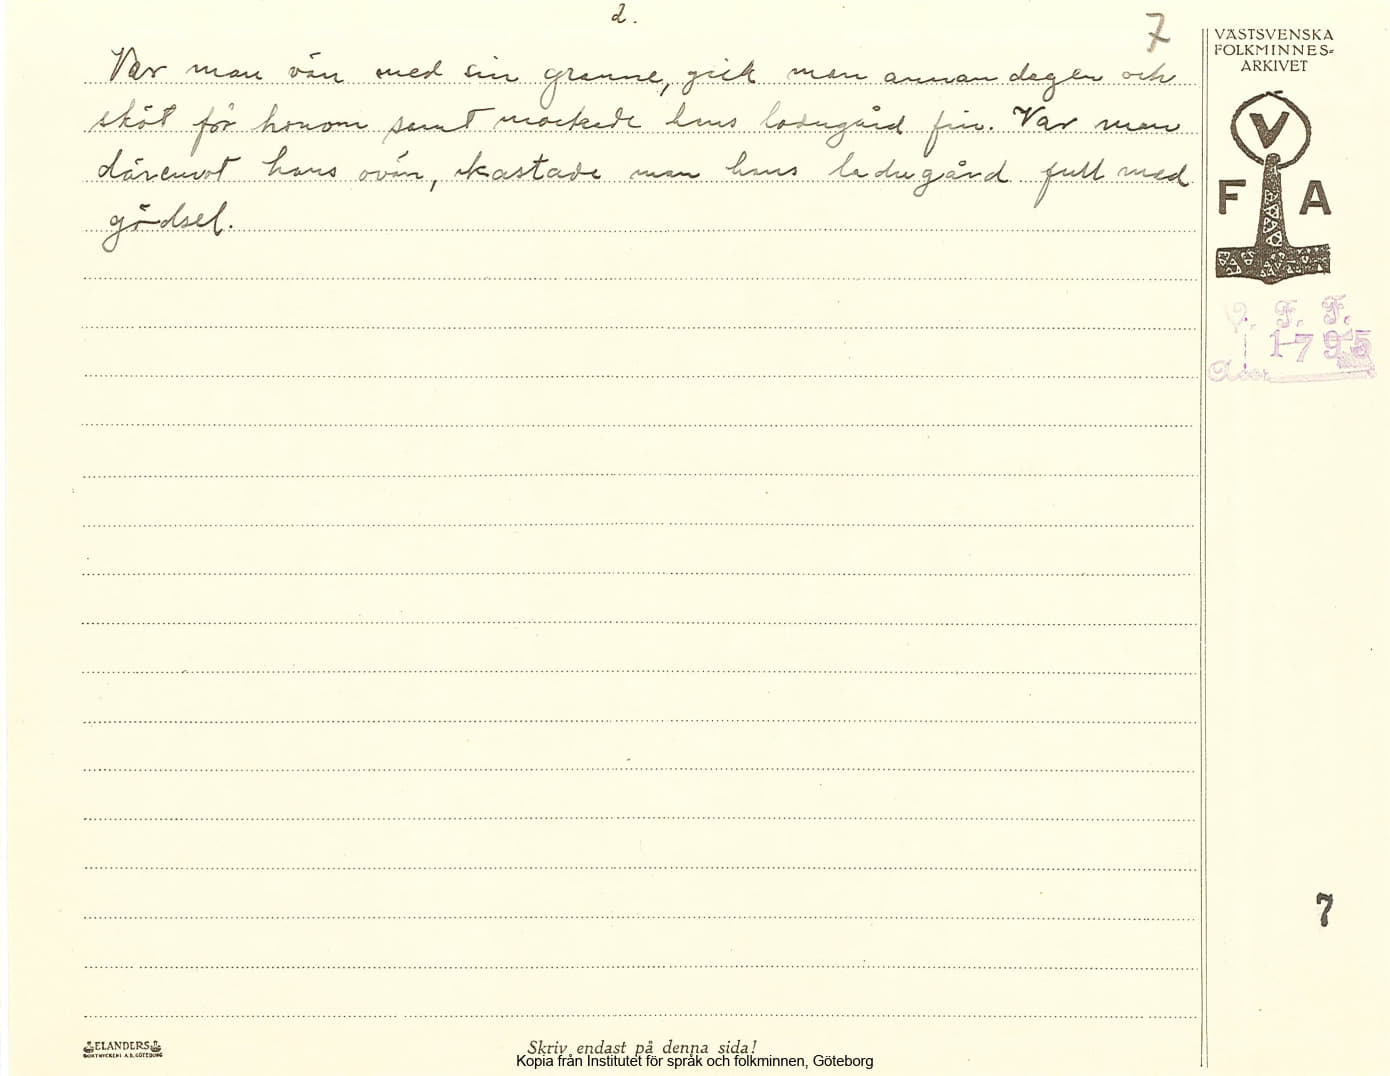 2.
7
Var man vän med sin granne, gick man annan dagen och
sköt för honom samt mockade hans ladugård fin. Var man
däremot hans ovän, kastade man hans ladugård full med
gödsel.
VÄSTSVENSKA
FOLKMINNES-
ARKIVET
V
F A
V. F. F.
1795
7
ELANDERS
BOKTRYCKERI A.B. GÖTEBORG
Skriv endast på denna sida!
Kopia från Institutet för språk och folkminnen, Göteborg